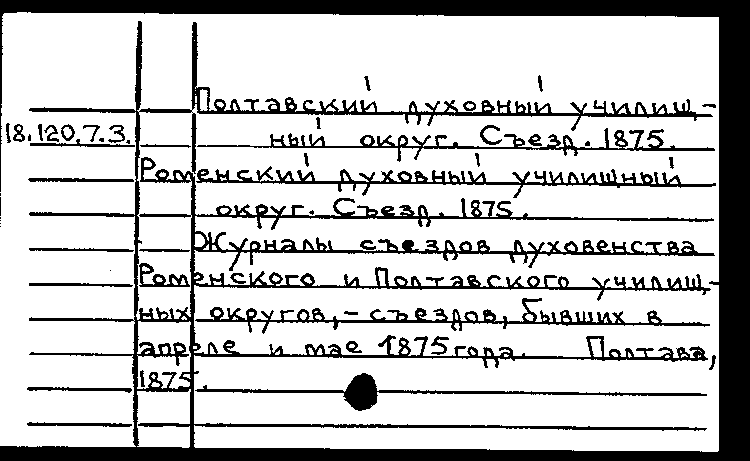 Полтавский духовный училищ-
18.120.7.3. ный округ. Съезд. 1875.
Роменский духовный училищный
округ. Съезд. 1875.
Журналы съездов духовенства
Роменского и Полтавского училищ-
ных округов, - съездов, бывших в
апреле и мае 1875 года. Полтава,
1875.